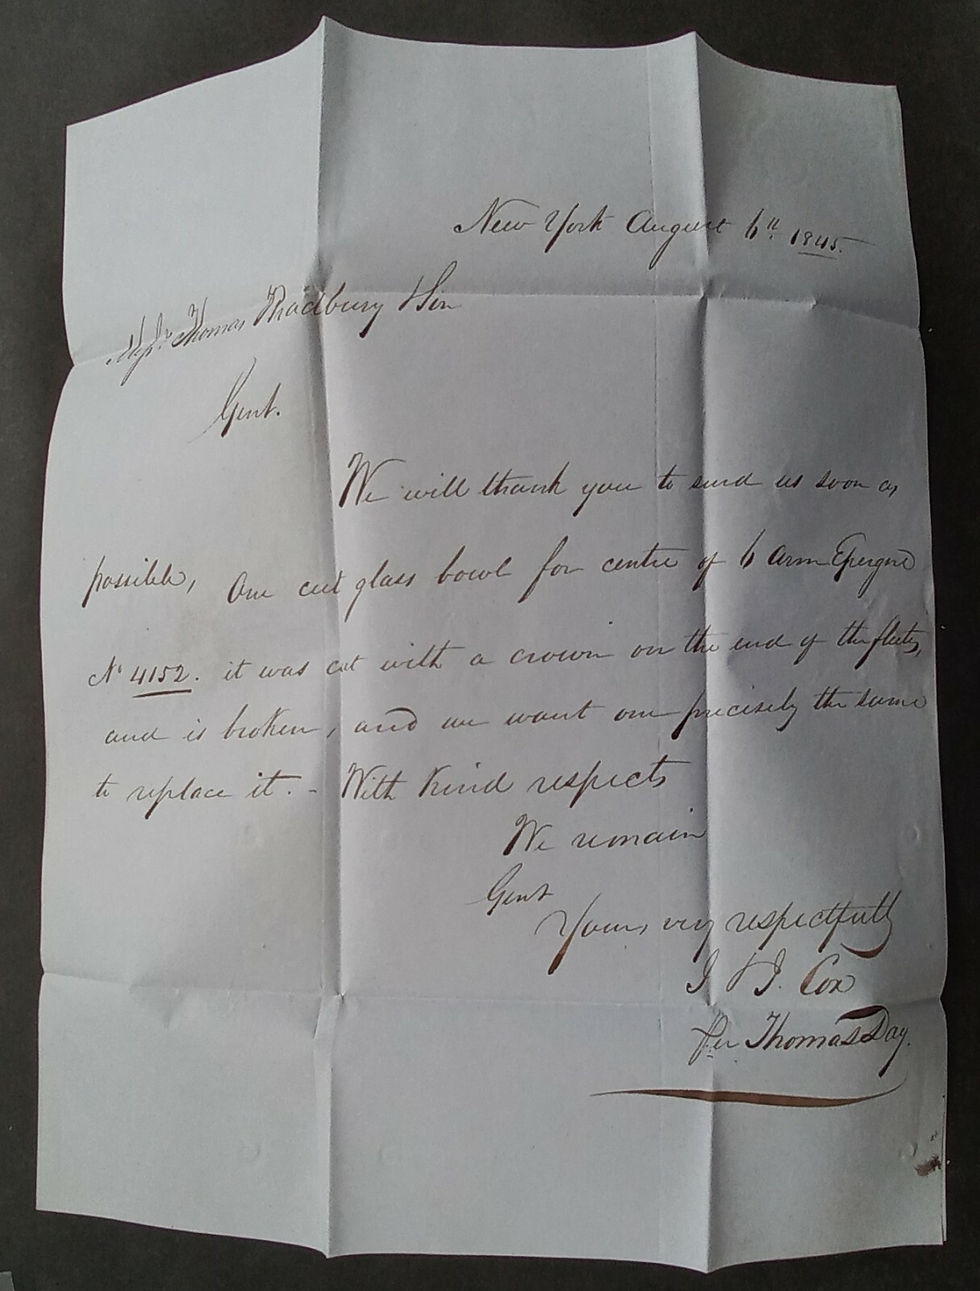 New York August 6th 1845.
Messrs Thomas Bradbury & Son
Gent.
We will thank you to send us soon as
possible, One cut glass bowl for centre of 6 arm Epergne
No 4152. it was cut with a crown on the end of the flutes,
and is broken, and we want one precisely the same
to replace it. - With Kind respects
We remain
Gent
Yours very respectfully
J & J. Cox
Per Thomas Day.